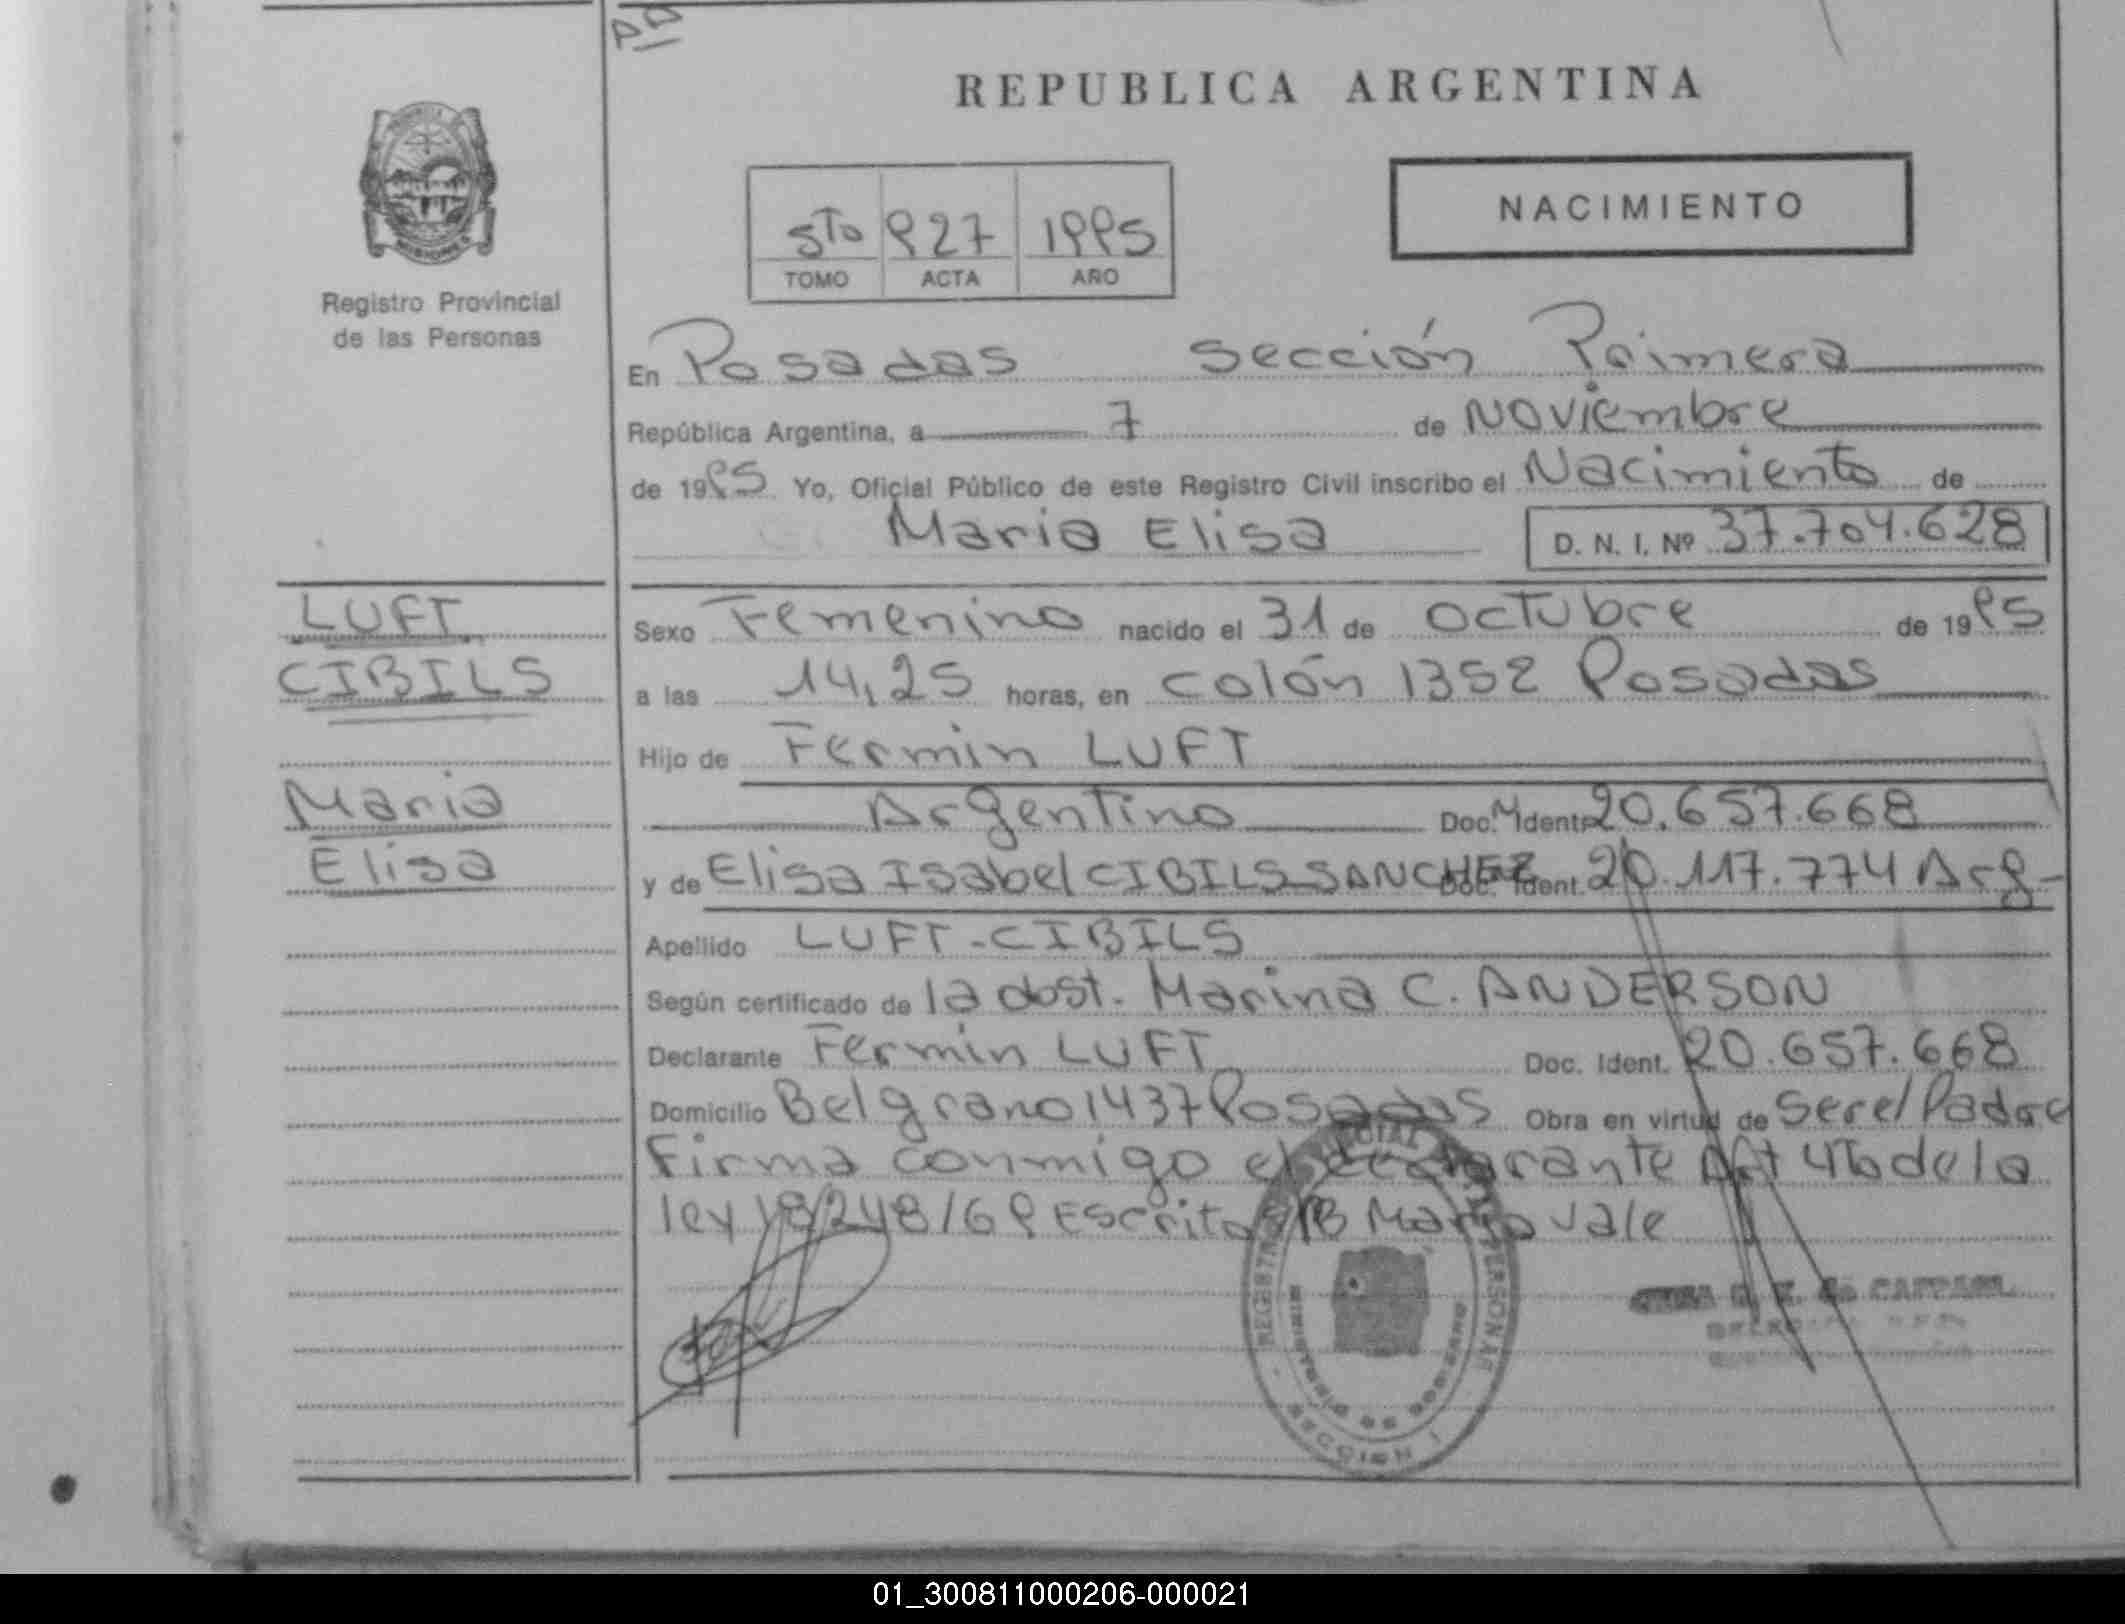 REPUBLICA ARGENTINA
NACIMIENTO
5To 927 1995
TOMO ACTA AÑO
Registro Provincial
de las Personas
En Posadas Sección Primera
República Argentina, a 7 de Noviembre
de 1995 Yo, Oficial Público de este Registro Civil inscribo el Nacimiento de
Maria Elisa D. N. I. Nº 37.704.628
LUFT
CIBILS
Maria
Elisa
Sexo Femenino nacido el 31 de Octubre de 1995
a las 14,25 horas, en Colón 1352 Posadas
Hijo de Fermin LUFT
Argentino Doc. Ident. 20.657.668
y de Elisa Isabel CIBILS SANCHEZ Doc. Ident. 20.117.774 Arg-
Apellido LUFT-CIBILS
Según certificado de la obst. Marina C. ANDERSON
Declarante Fermin LUFT Doc. Ident. 20.657.668
Domicilio Belgrano 1437 Posadas Obra en virtud de Ser el Padre
Firma conmigo el declarante Art 4to de la
ley 18248/69 Escrito S/B Maria Vale
REGISTRO PROVINCIAL DE LAS PERSONAS
MINISTERIO DE GOBIERNO
SECCION 1
01_300811000206-000021